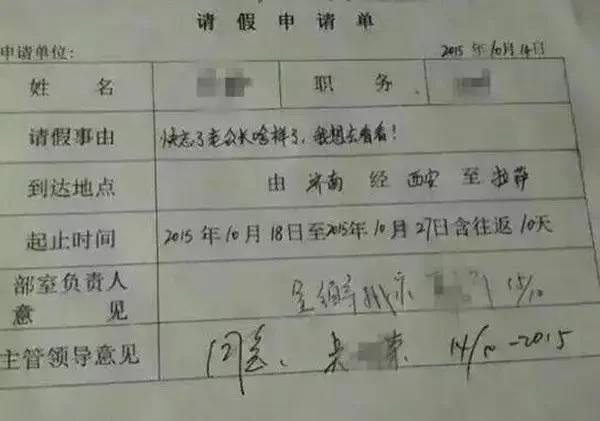 请假申请单
申请单位： 2015年10月14日
姓名 职务
请假事由 快忘了老公长啥样了，我想去看看！
到达地点 由 济南 经 西安 至 拉萨
起止时间 2015年10月18日至2015年10月27日含往返10天
部室负责人意见 呈领导批示 15/10
主管领导意见 同意、 14/10-2015